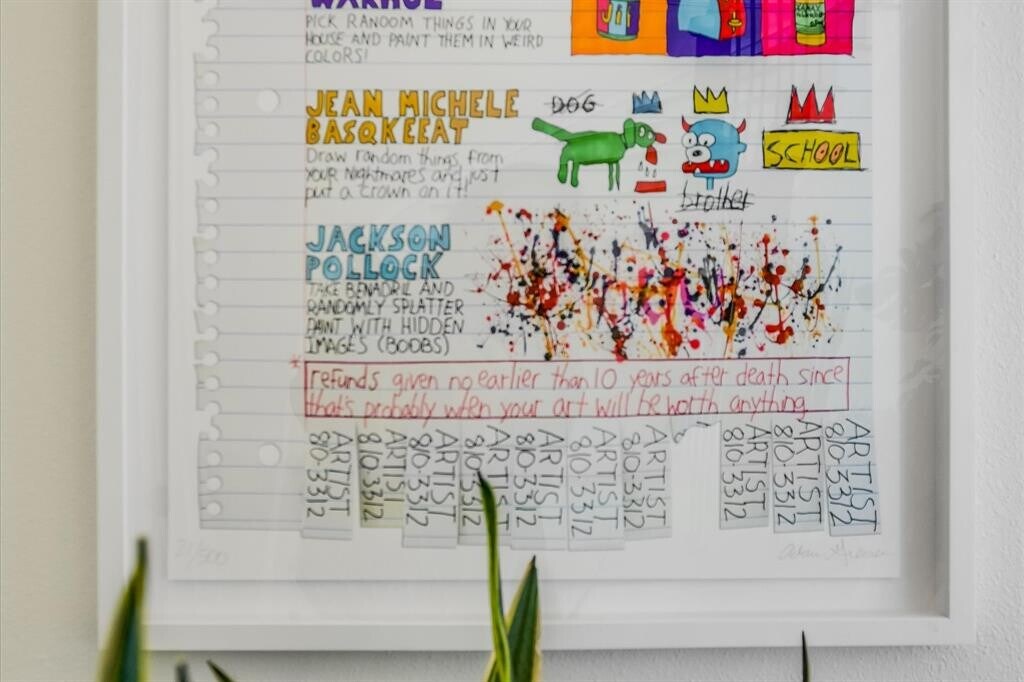 WARHOL
PICK RANDOM THINGS IN YOUR
HOUSE AND PAINT THEM IN WEIRD
COLORS!
JEAN MICHELE
BASQKEEAT
Draw random things from
your nightmares and just
put a crown on it!
DOG
SCHOOL
brother
JACKSON
POLLOCK
TAKE BENADRIL AND
RANDOMLY SPLATTER
PAINT WITH HIDDEN
IMAGES (BOOBS)
* refunds given no earlier than 10 years after death since
that's probably when your art will be worth anything.
ARTIST
810-3312
ARTIST
810-3312
ARTIST
810-3312
ARTIST
810-3312
ARTIST
810-3312
ARTIST
810-3312
ARTIST
810-3312
ARTIST
810-3312
ARTIST
810-3312
ARTIST
810-3312